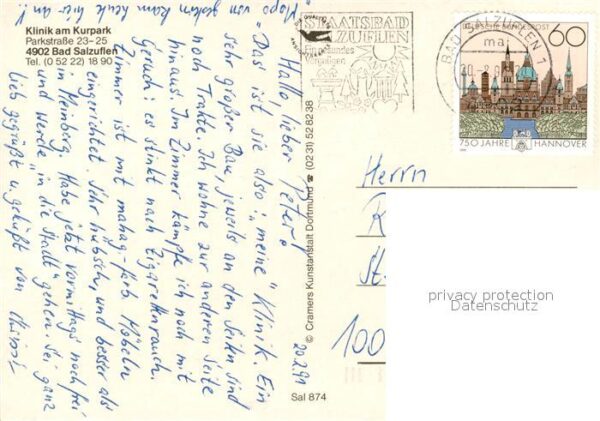 Klinik am Kurpark
Parkstraße 23-25
4902 Bad Salzuflen
Tel. (0 52 22) 18 90
"Mopo von gestern kam heute hier an!!
20.2.91
Hallo, lieber Peter!
"Das" ist sie also: "meine" Klinik. Ein
sehr großer Bau, jeweils an den Seiten sind
noch Trakte. Ich wohne zur anderen Seite
hinaus. Im Zimmer kämpfe ich noch mit
Geruch: es stinkt nach Zigarettenrauch.
Zimmer ist mit mahag.-farb. Möbeln
eingerichtet. Sehr hübsch, und besser als
in Meinberg. Habe jetzt vormittags noch frei
und werde "in die Stadt" gehen. Sei ganz
lieb gegrüßt u. geküßt von
© Cramers Kunstanstalt Dortmund ☎ (02 31) 52 82 38
Sal 874
STAATSBAD
SALZUFLEN
Ein gesundes
Vergnügen
BAD SALZUFLEN 1
ma
DEUTSCHE BUNDESPOST
60
750 JAHRE HANNOVER
Herrn
100
privacy protection
Datenschutz